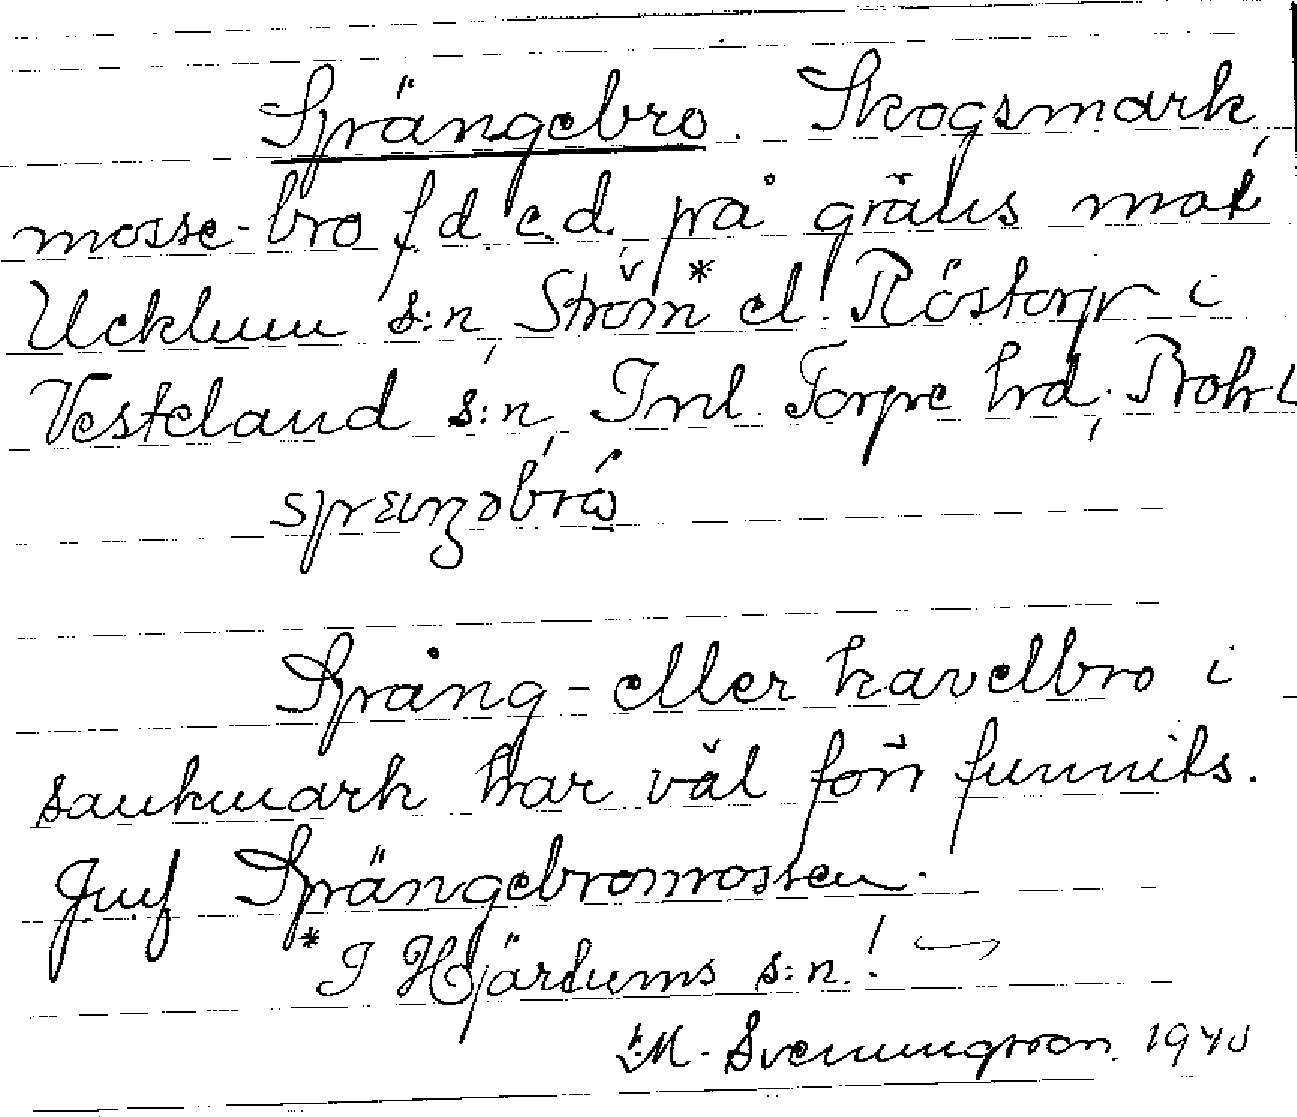 Sprängebro. Skogsmark,
mosse-bro f.d. e.d. på gräns mot
Ucklum s:n, Ström* el. Röstorp i
Västerland s:n, Inl. Torpe hrd, Bohl
Spång- eller kavelbro i
sankmark har väl förr funnits.
Jmf Sprängebromossen.
* I Hjärtums s:n!
M. Svenungsson 1940